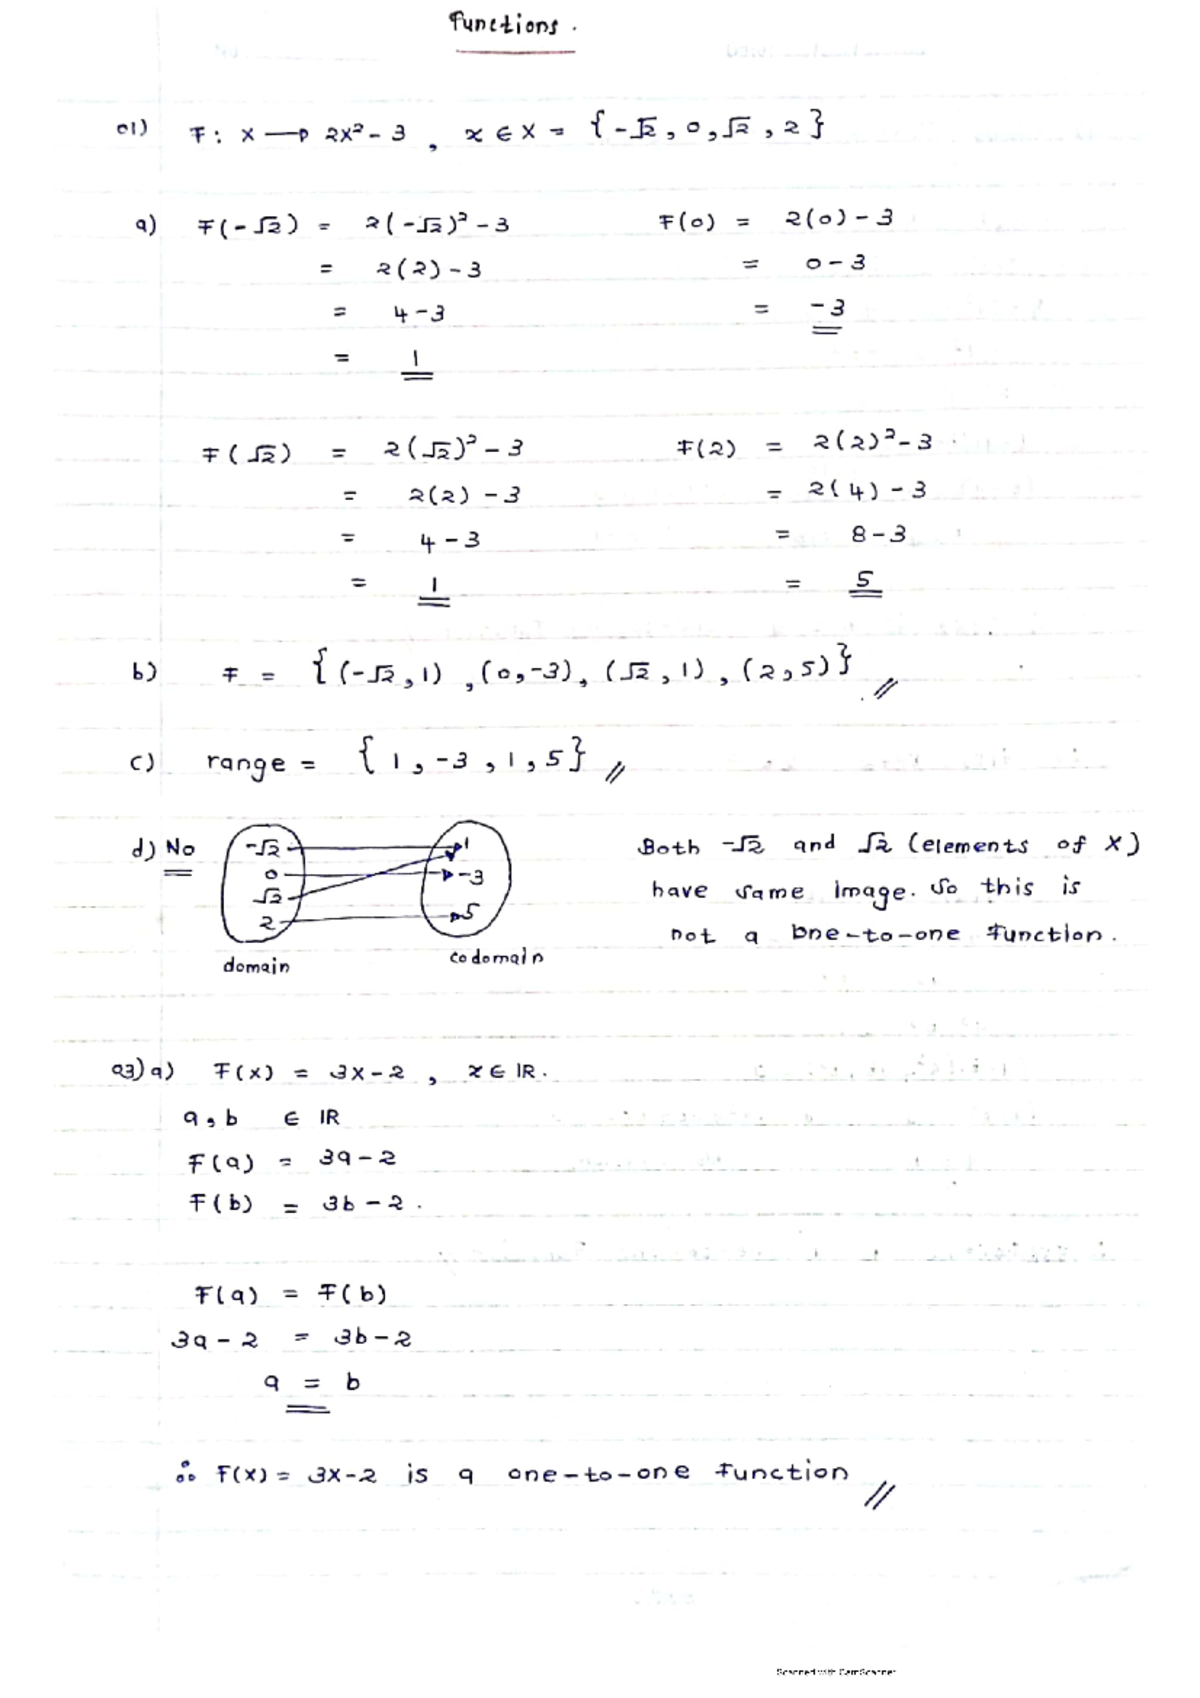 Functions.
01) F: x → 2x² - 3 , x ∈ X = {-√2, 0, √2, 2}
a) F(-√2) = 2(-√2)² - 3    F(0) = 2(0) - 3
= 2(2) - 3    = 0 - 3
= 4 - 3    = -3
= 1
F(√2) = 2(√2)² - 3    F(2) = 2(2)² - 3
= 2(2) - 3    = 2(4) - 3
= 4 - 3    = 8 - 3
= 1    = 5
b) F = {(-√2, 1), (0, -3), (√2, 1), (2, 5)} //
c) range = {1, -3, 1, 5} //
d) No
-√2 1
0 -3
√2
2 5
domain codomain
Both -√2 and √2 (elements of X)
have same image. So this is
not a one-to-one function.
03) a) F(x) = 3x - 2 , x ∈ IR.
a, b ∈ IR
F(a) = 3a - 2
F(b) = 3b - 2.
F(a) = F(b)
3a - 2 = 3b - 2
a = b
∴ F(x) = 3x - 2 is a one-to-one function //
Scanned with CamScanner